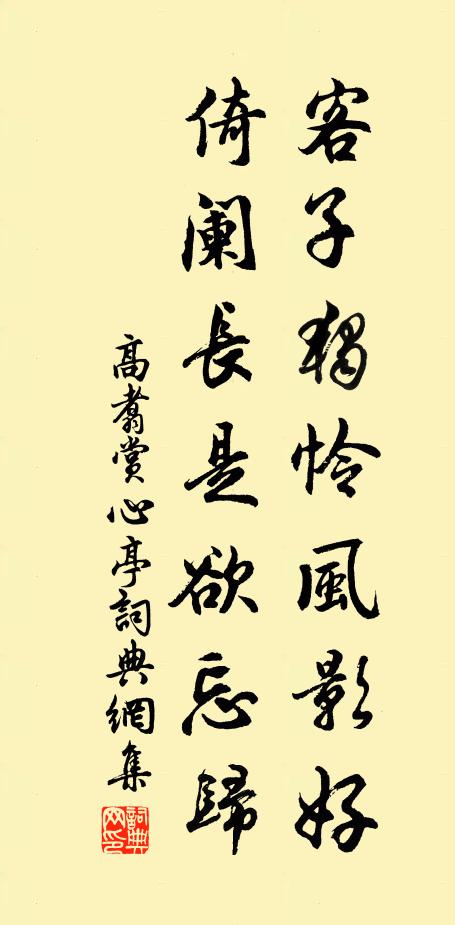 客子獨怜風影好
倚闌長是欲忘歸
高翥賞心亭詞典網集
詞典網印